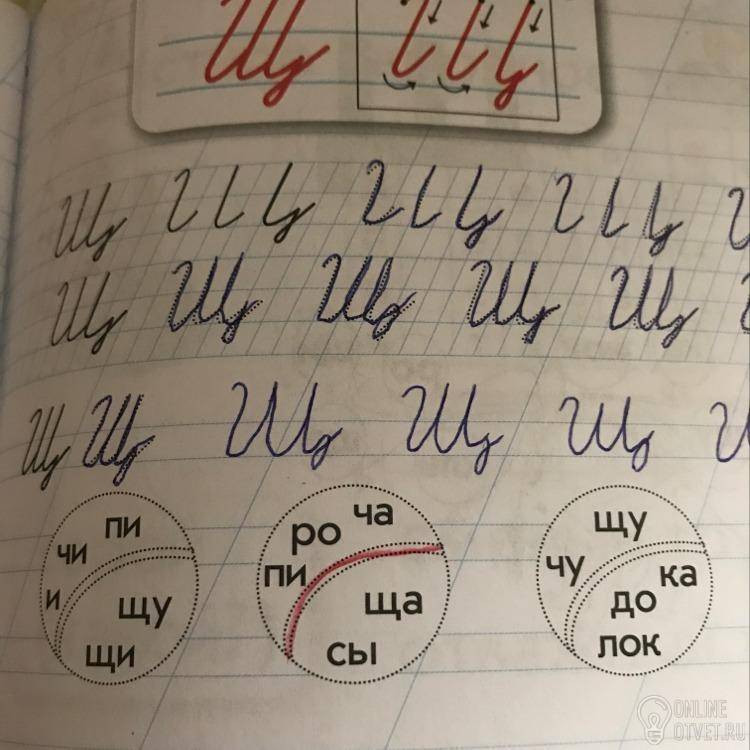 Щ
Щ Щ
Щ Щ Щ Щ Щ
Щ Щ Щ Щ Щ
пи
чи
и
щу
щи
ча
ро
пи
ща
сы
щу
чу
ка
до
лок
ONLINE
OTVET.RU